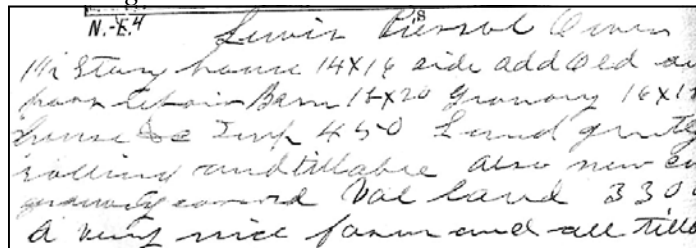 N.-E.4
Lewis Pierrol Owner
1 1/2 Story house 14x16 side add Old
poor repair Barn 12x20 Granary 16x1
house &c Imp 450 Land gently
rolling and tillable also new
Val land 330
A very nice farm and all till